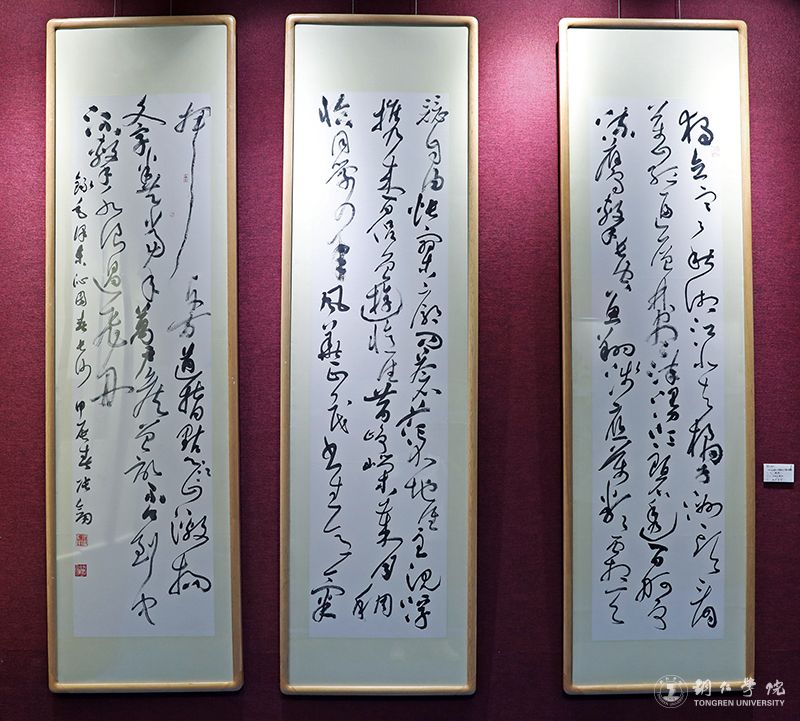 独立寒秋湘江北去橘子洲头看
萬山红遍层林尽染漫江碧透百舸争
流鹰击长空鱼翔浅底萬类霜天
竞自由怅寥廓问苍茫大地谁主沉浮
携来百侣曾游忆往昔峥嵘岁月稠
恰同学少年風华正茂书生意气
挥斥方遒指点江山激扬
文字粪土当年萬户侯曾记否到中
流击水浪遏飞舟
录毛泽东沁园春长沙 甲辰春
铜仁学院
TONGREN UNIVERSITY